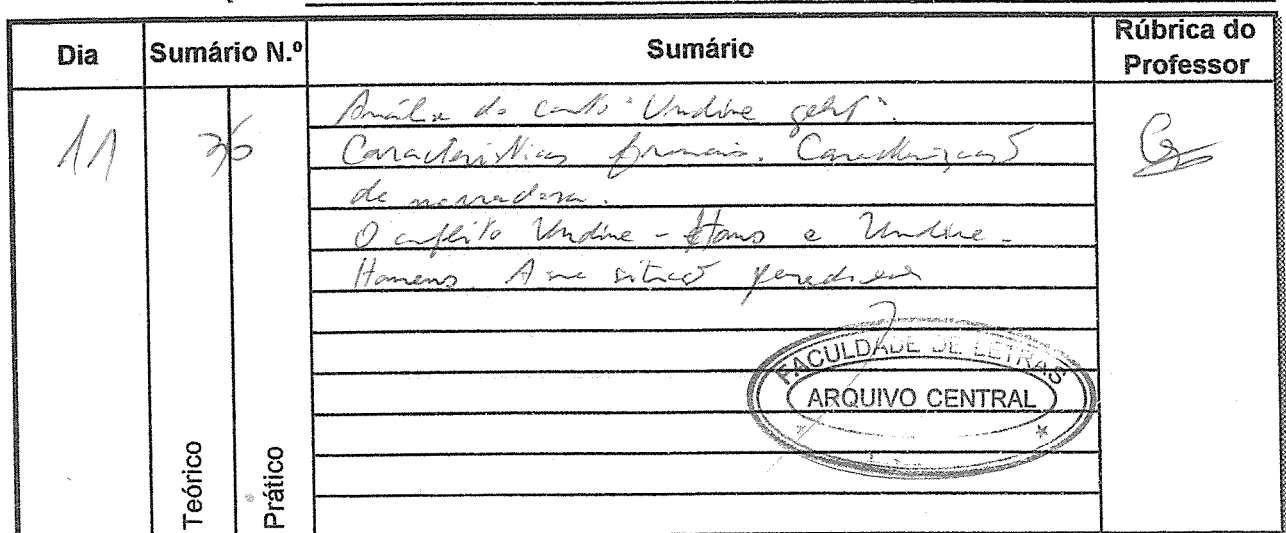 Dia Sumário N.º Sumário Rúbrica do Professor
11 36 Análise do conto "Undine geht".
Características formais. Caracterização
da narradora.
O conflito Undine - Hans e Undine -
Homens. A sua situação
FACULDADE DE LETRAS
ARQUIVO CENTRAL
Teórico
Prático